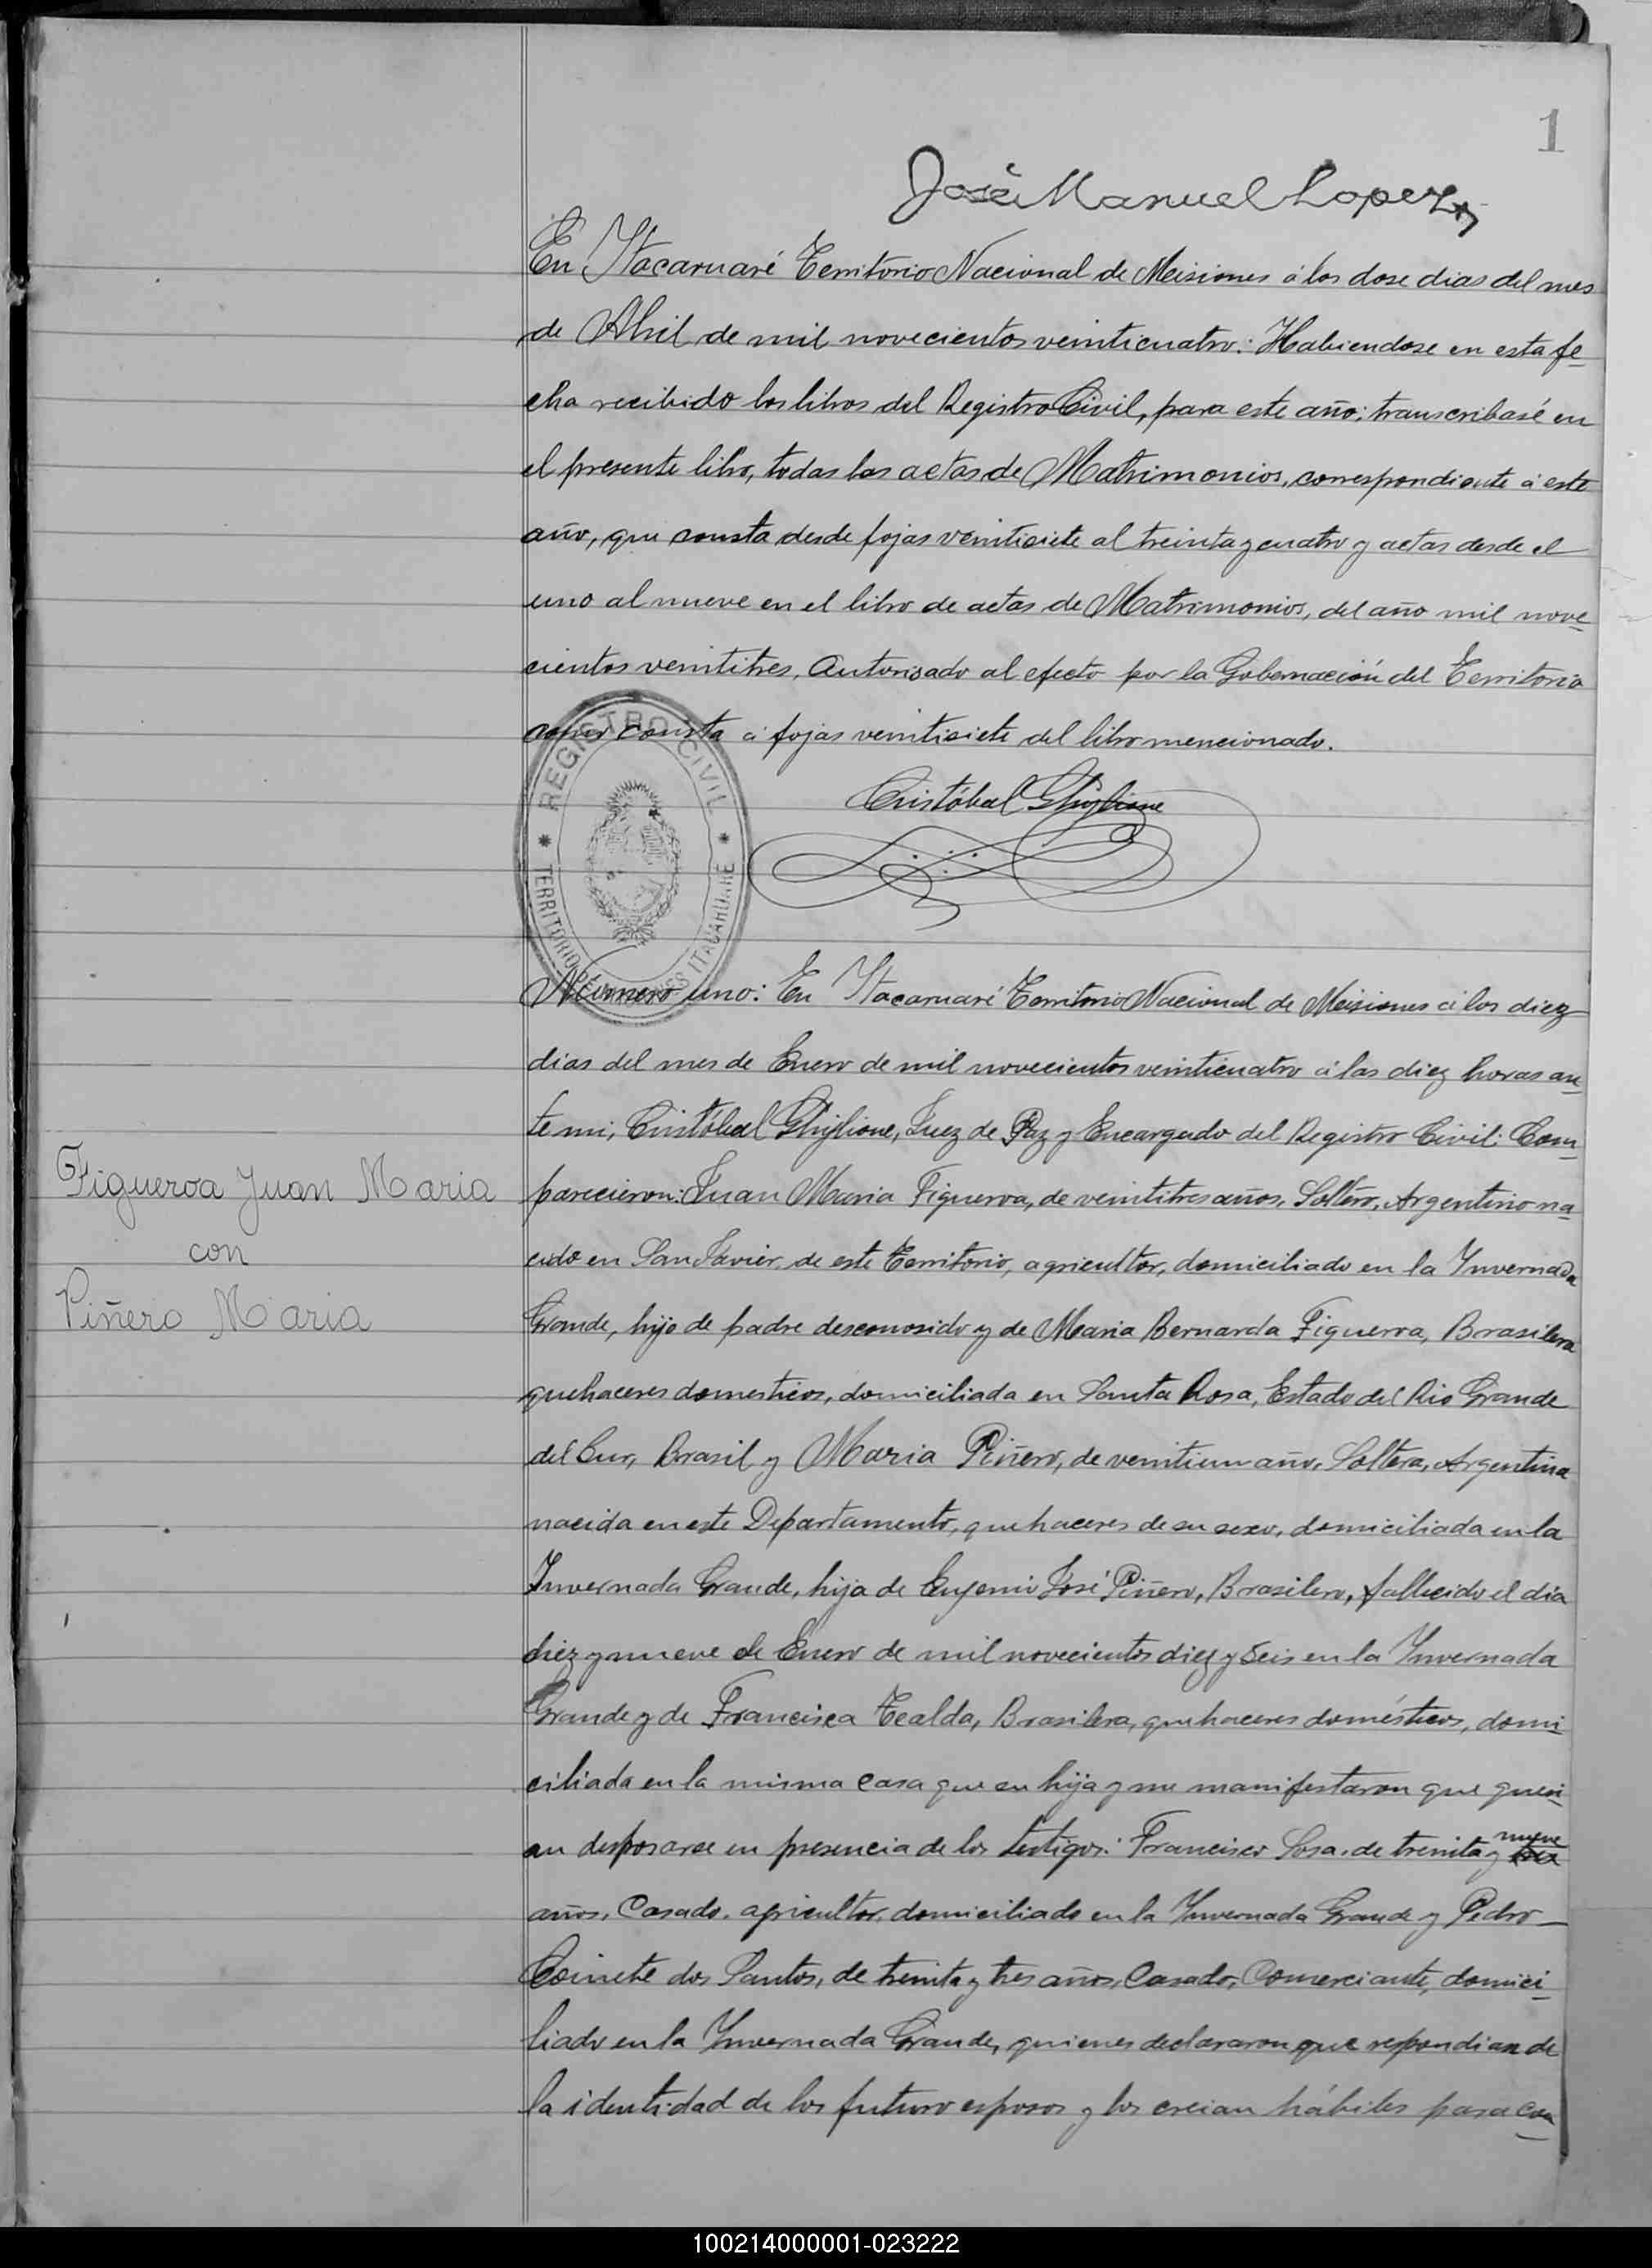 1
José Manuel Lopez
En Itacaruaré Territorio Nacional de Meisiones á los dose dias del mes
de Abril de mil novecientos veinticuatro: Habiendose en esta fe
cha recibido los libros del Registro Civil, para este año; transcribasé en
el presente libro, todas las actas de Matrimonios, correspondiente á este
año, que consta desde fojas veintisiete al treinta y cuatro y actas desde el
uno al nueve en el libro de actas de Matrimonios, del año mil nove
cientos veintitres, autorisado al efecto por la Gobernación del Territorio
como consta á fojas veintisiete del libro mencionado.
Cristóbal Ghiglione
REGISTRO CIVIL
TERRITORIO DE MISIONES ITACARUARE
Número uno: En Itacaruaré Territorio Nacional de Meisiones á los diez
dias del mes de Enero de mil novecientos veinticuatro á las diez horas an
te mi, Cristóbal Ghiglione, Juez de Paz y Encargado del Registro Civil: Com
Figueroa Juan Maria
con
Piñero Maria
parecieron: Juan Maria Figueroa, de veintitres años, Soltero, Argentino na
cido en San Javier, de este Territorio, agricultor, domiciliado en la Invernada
Grande, hijo de padre desconosido y de Maria Bernarda Figueroa, Brasilera
quehaceres domesticos, domiciliada en Santa Rosa, Estado del Rio Grande
del Sur, Brasil y Maria Piñero, de veintiun año, Soltera, Argentina
nacida en este Departamento, quehaceres de su sexo, domiciliada en la
Invernada Grande, hija de Eugenio José Piñero, Brasilero, fallecido el dia
diez y nueve de Enero de mil novecientos diez y seis en la Invernada
Grande y de Francisca Tealda, Brasilera, quehaceres domésticos, domi
ciliada en la misma casa que su hija y me manifestaron que queri
an desposarse en presencia de los testigos: Francisco Sosa, de treinta y nueve
años, Casado, agricultor, domiciliado en la Invernada Grande y Pedro
dos Santos, de treinta y tres años, Casado, Comerciante, domici
liado en la Invernada Grande, quienes declararon que respondian de
la identidad de los futuro esposos y los creian hábiles para con
100214000001-023222